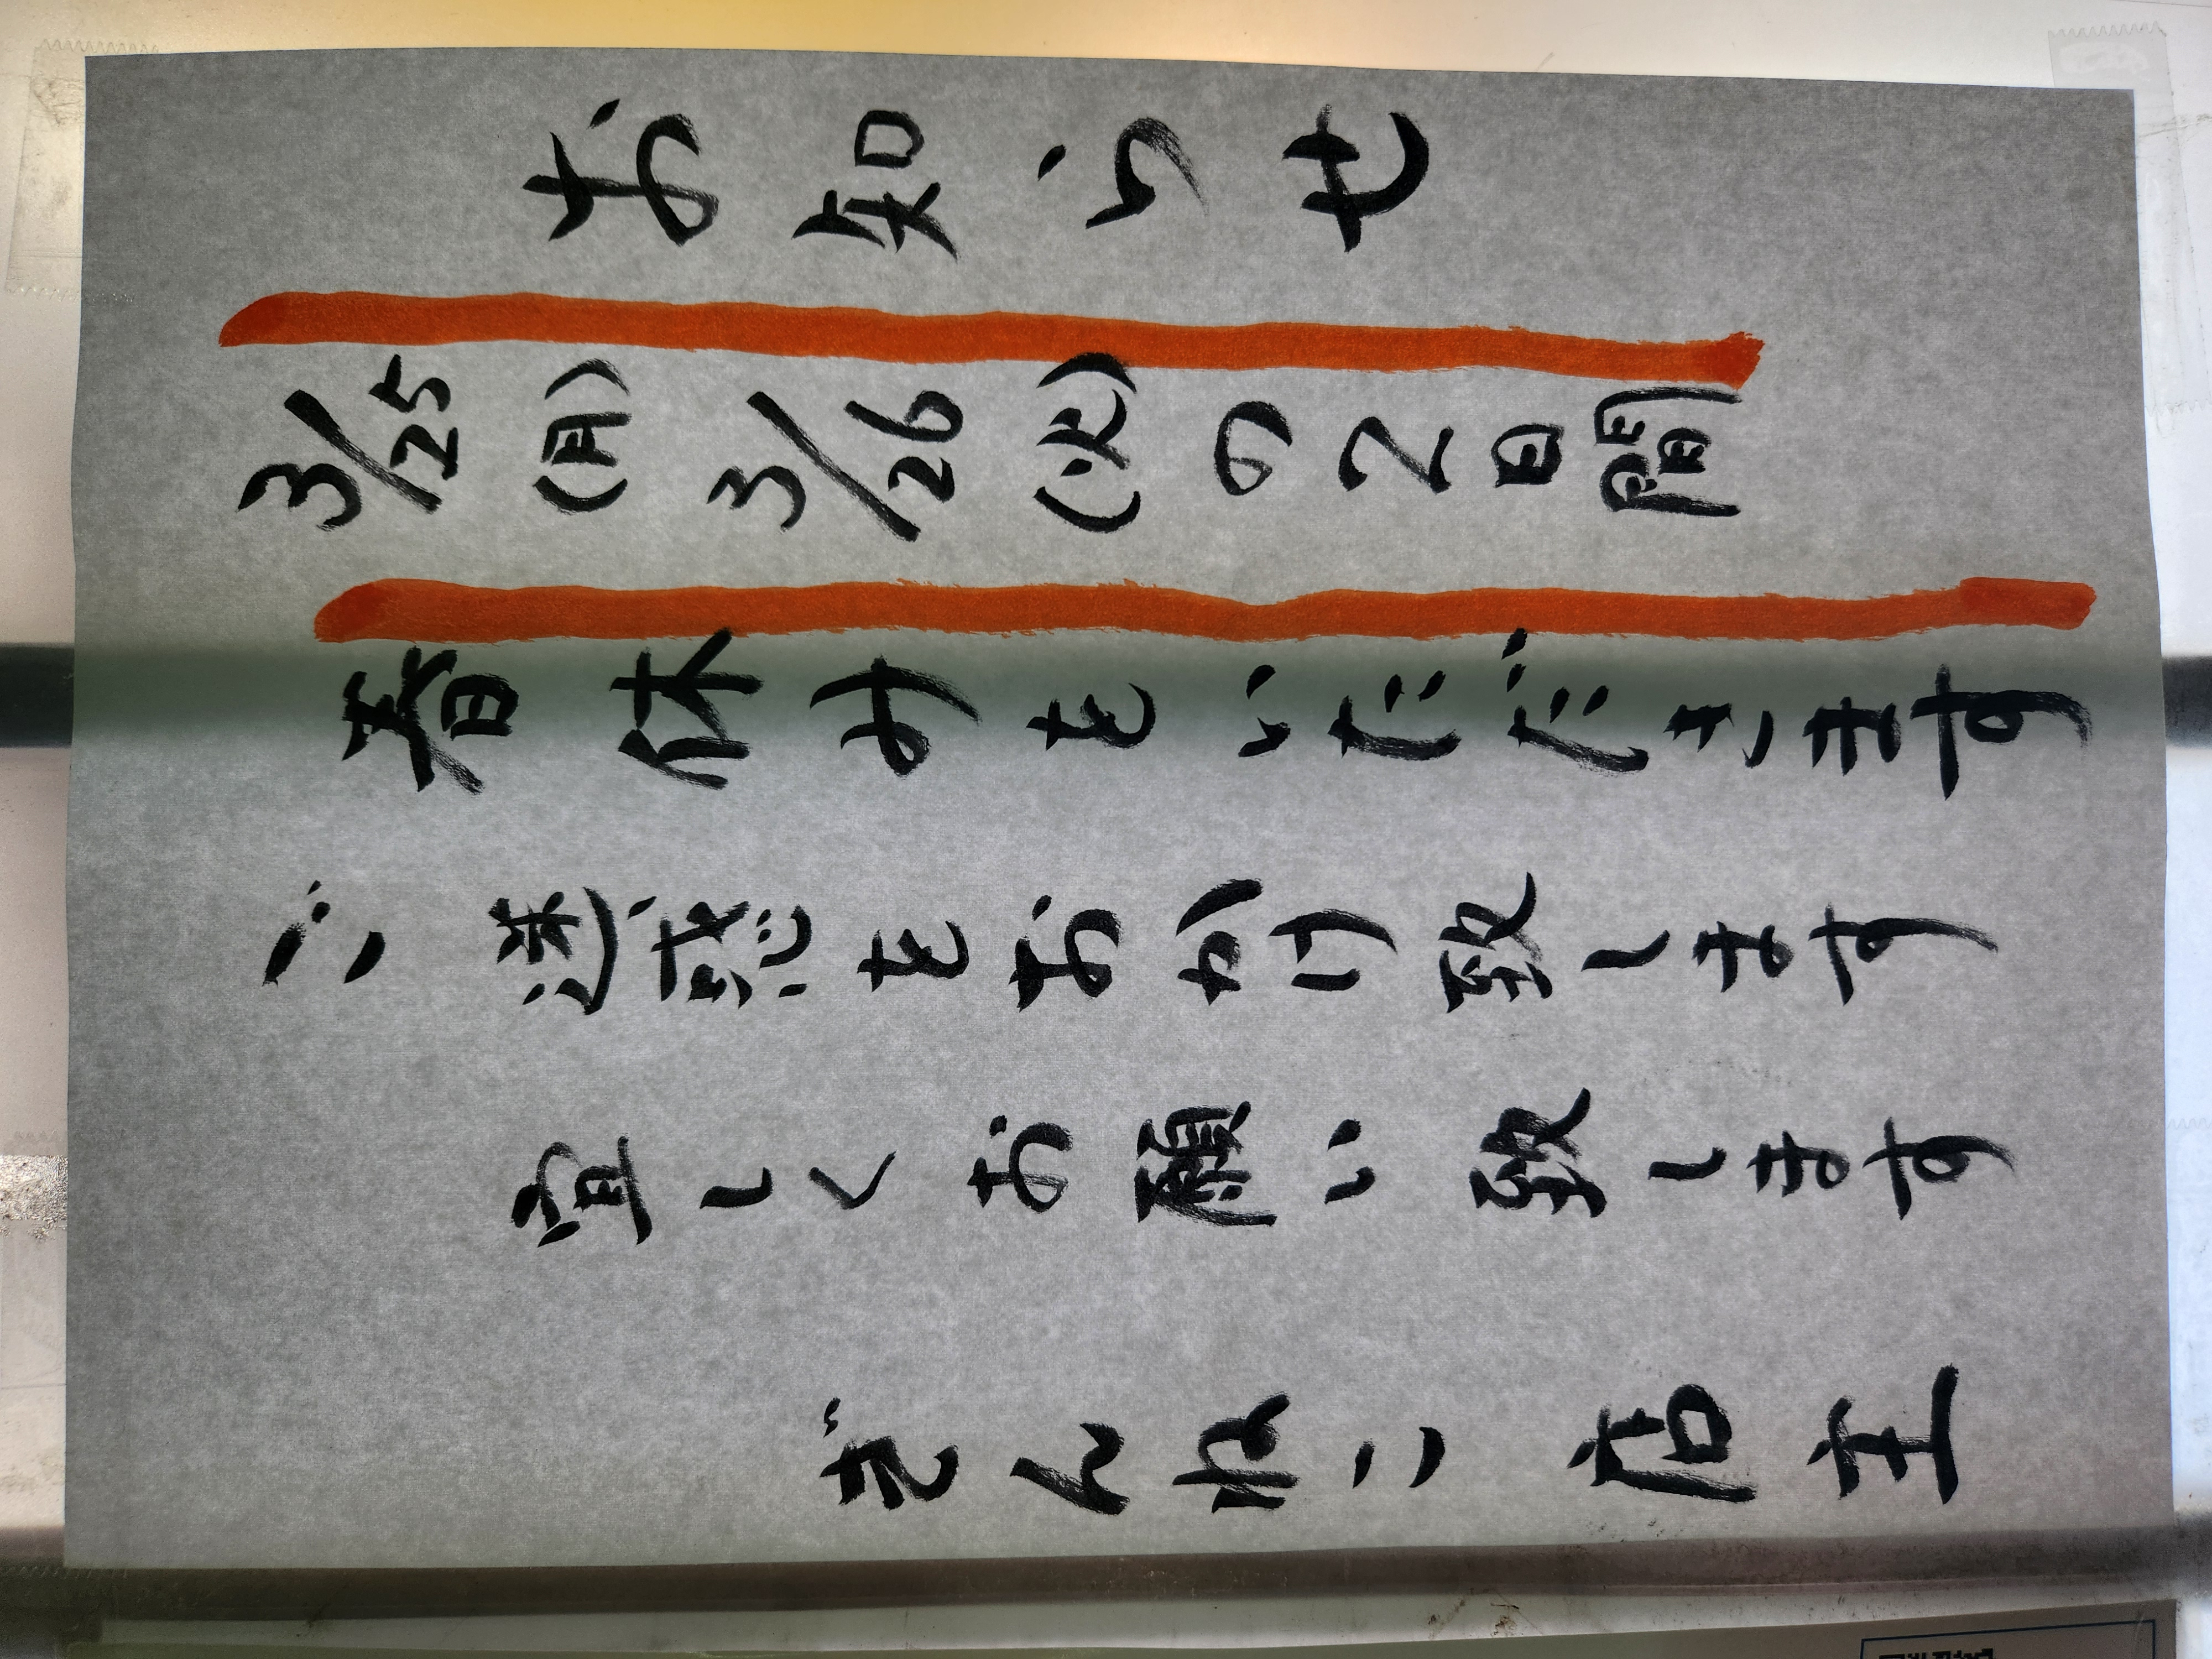 お知らせ
3/25(月)3/26(火)の2日間
春休みをいただきます
ご迷惑をおかけ致します
宜しくお願い致します
ぎんねこ 店主